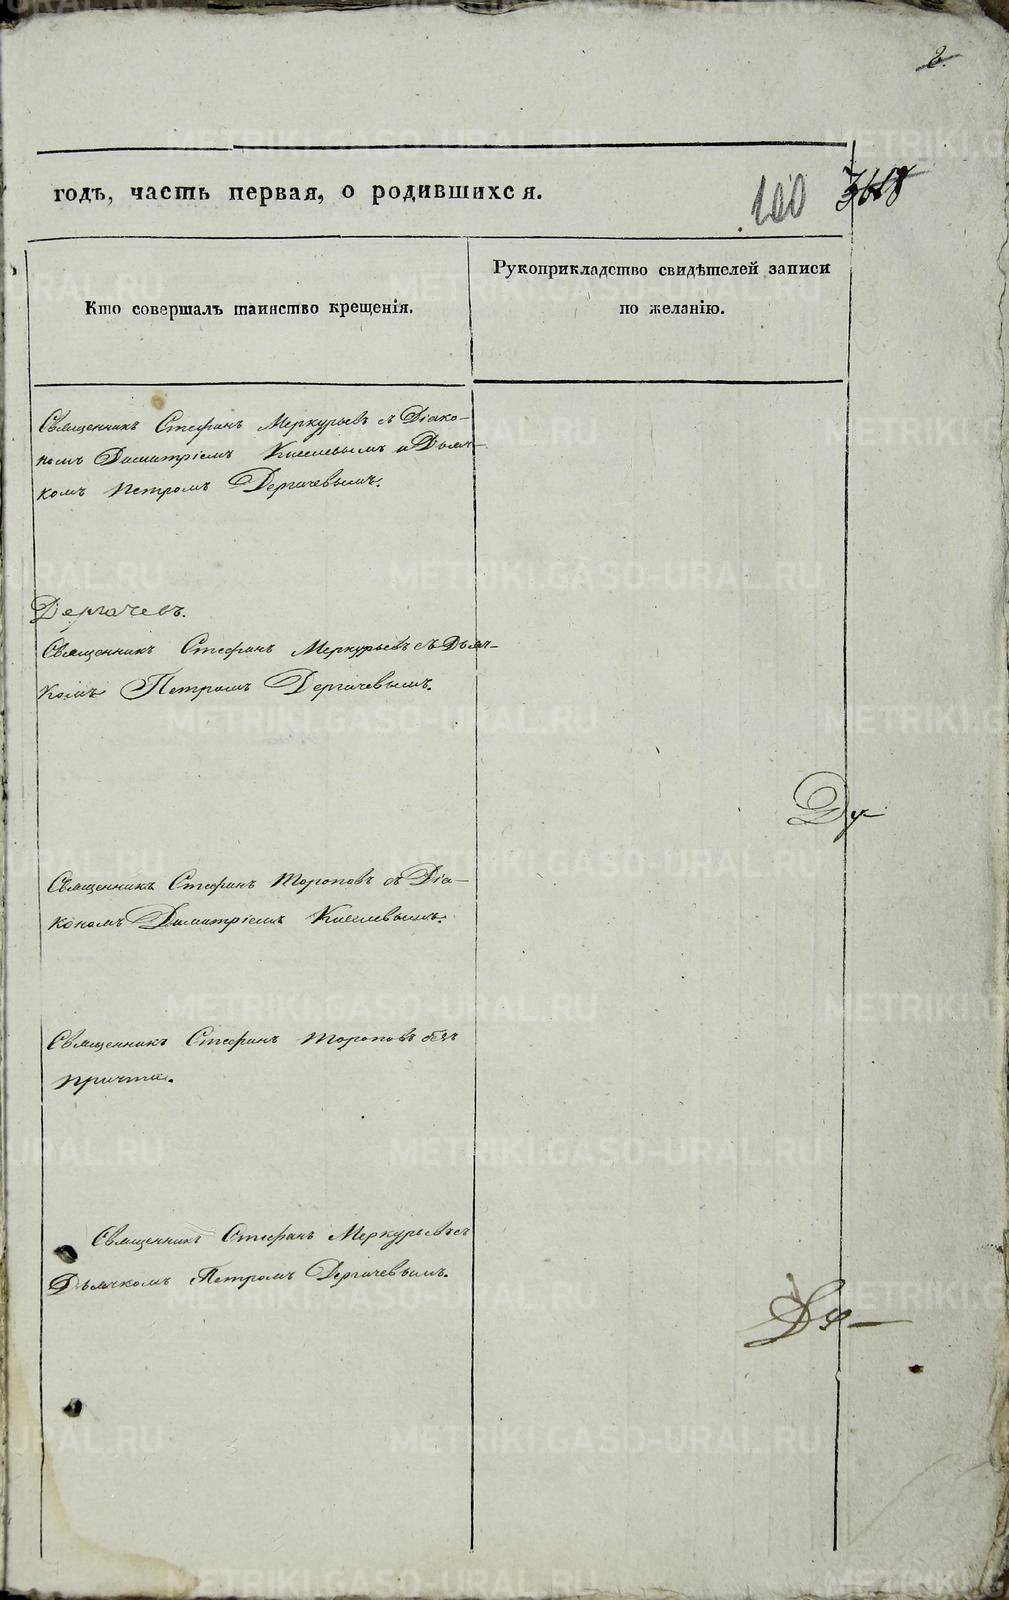 2.
годъ, часть первая, о родившихся.
100
3618
Кто совершалъ таинство крещенія.
Рукоприкладство свидѣтелей записи
по желанію.
Священникъ Стефанъ Меркурьевъ съ Діако-
номъ Димитріемъ Киселевымъ и Дьяч-
комъ Петромъ Дергачевымъ.
Дергачевъ.
Священникъ Стефанъ Меркурьевъ съ Дьяч-
комъ Петромъ Дергачевымъ.
Священникъ Стефанъ Тороповъ съ Діа-
кономъ Димитріемъ Киселевымъ.
Священникъ Стефанъ Тороповъ безъ
причта.
Священникъ Стефанъ Меркурьевъ съ
Дьячкомъ Петромъ Дергачевымъ.
METRIKI.GASO-URAL.RU